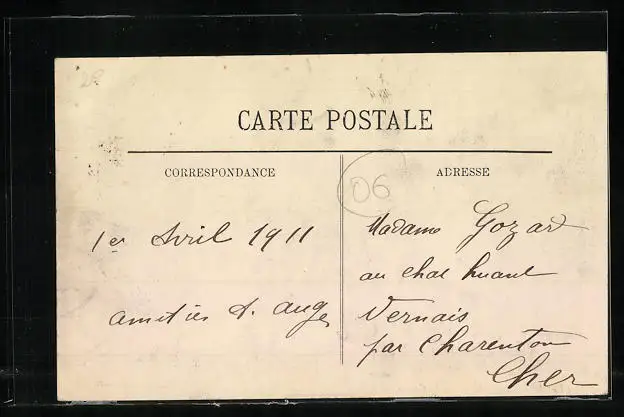 CARTE POSTALE
CORRESPONDANCE
ADRESSE
06
1er Avril 1911
amitiés A. Auge
Madame Gozard
au chat huant
Vernais
par Charenton
Cher